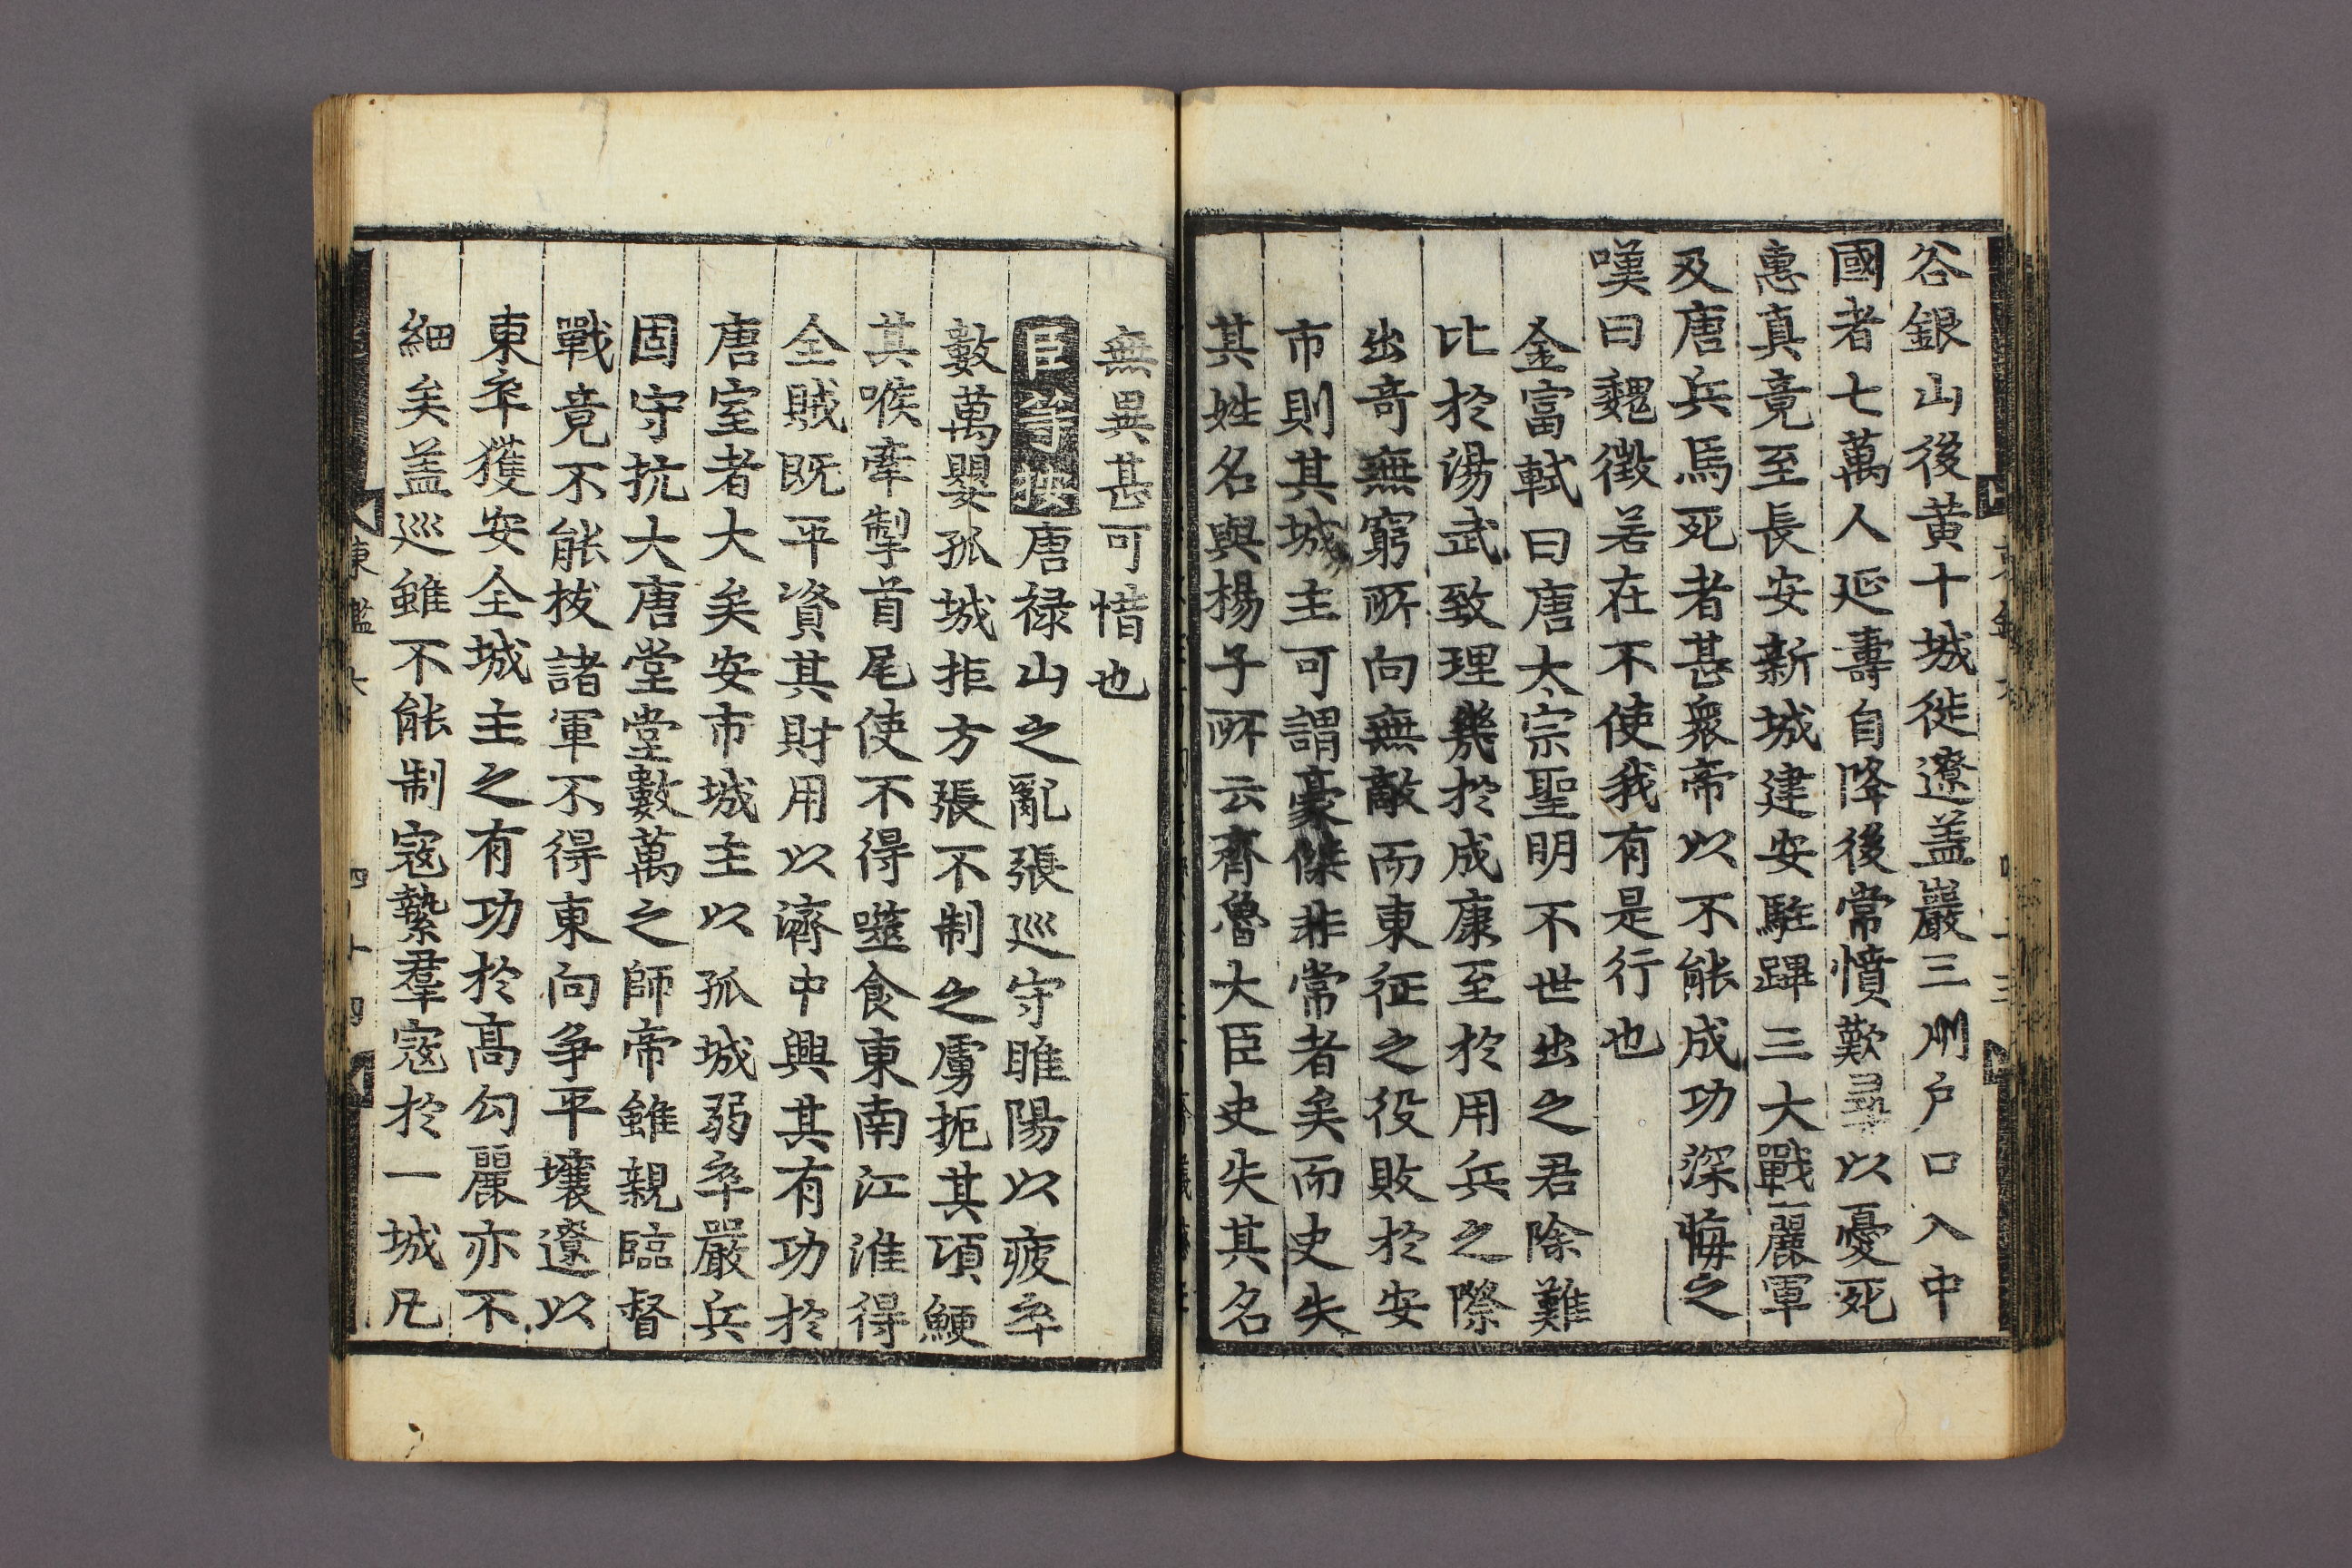 谷銀山後黄十城徙遼盖巖三州戶口入中
國者七萬人延壽自降後常憤歎尋以憂死
惠真竟至長安新城建安駐蹕三大戰麗軍
及唐兵馬死者甚衆帝以不能成功深悔之
嘆曰魏徵若在不使我有是行也
金富軾曰唐太宗聖明不世出之君除難
比於湯武致理幾於成康至於用兵之際
出奇無窮所向無敵而東征之役敗於安
市則其城主可謂豪傑非常者矣而史失
其姓名與楊子所云齊魯大臣史失其名
無異甚可惜也
臣等按唐禄山之亂張巡守睢陽以疲卒
數萬嬰孤城拒方張不制之虜扼其項鯁
其喉牽掣首尾使不得噬食東南江淮得
全賊既平資其財用以濟中興其有功於
唐室者大矣安市城主以孤城弱卒嚴兵
固守抗大唐堂堂數萬之師帝雖親臨督
戰竟不能拔諸軍不得東向爭平壤遼以
東卒獲安全城主之有功於高勾麗亦不
細矣盖巡雖不能制寇蟄羣寇於一城凡
東鑑六
四十四